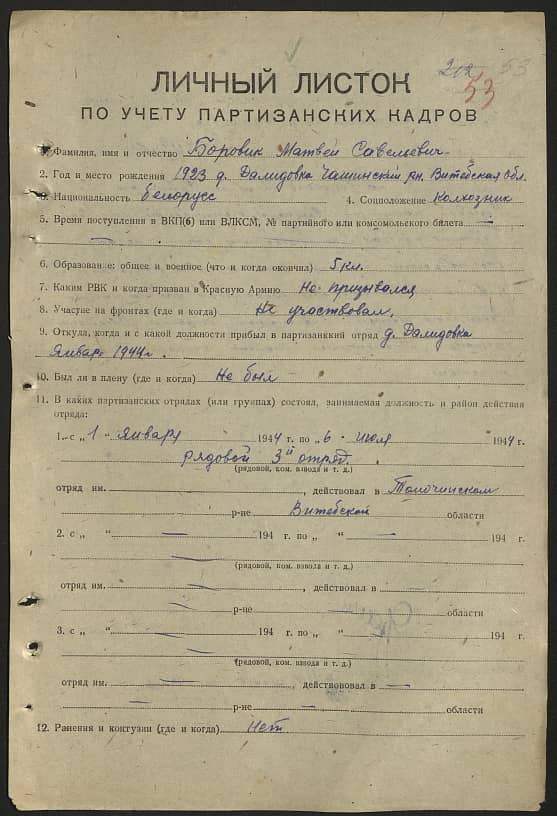 212 53
53
ЛИЧНЫЙ ЛИСТОК
ПО УЧЕТУ ПАРТИЗАНСКИХ КАДРОВ
1. Фамилия, имя и отчество Боровик Матвей Савельевич
2. Год и место рождения 1923 д. Далидовка Чашницкий рн. Витебская обл.
3. Национальность белорусс 4. Соцположение Колхозник
5. Время поступления в ВКП(б) или ВЛКСМ, № партийного или комсомольского билета —
—
6. Образование: общее и военное (что и когда окончил) 5 кл.
7. Каким РВК и когда призван в Красную Армию Не призывался
8. Участие на фронтах (где и когда) Не участвовал.
9. Откуда, когда и с какой должности прибыл в партизанский отряд д. Далидовка
Январь 1944 г.
10. Был ли в плену (где и когда) Не был
11. В каких партизанских отрядах (или группах) состоял, занимаемая должность и район действия
отряда:
1. с „ 1 “ Января 1944 г. по „ 6 “ июля 1944 г.
рядовой 3й отряд.
(рядовой, ком. взвода и т. д.)
отряд им. , действовал в Толочинском
р-не Витебской области
2. с „ “ — 194 г. по „ “ — 194 г.
—
(рядовой, ком. взвода и т. д.)
отряд им. — , действовал в —
— р-не — области
3. с „ “ — 194 г. по „ “ — 194 г.
—
(рядовой, ком. взвода и т. д.)
отряд им. — , действовал в —
— р-не — области
12. Ранения и контузии (где и когда) Нет